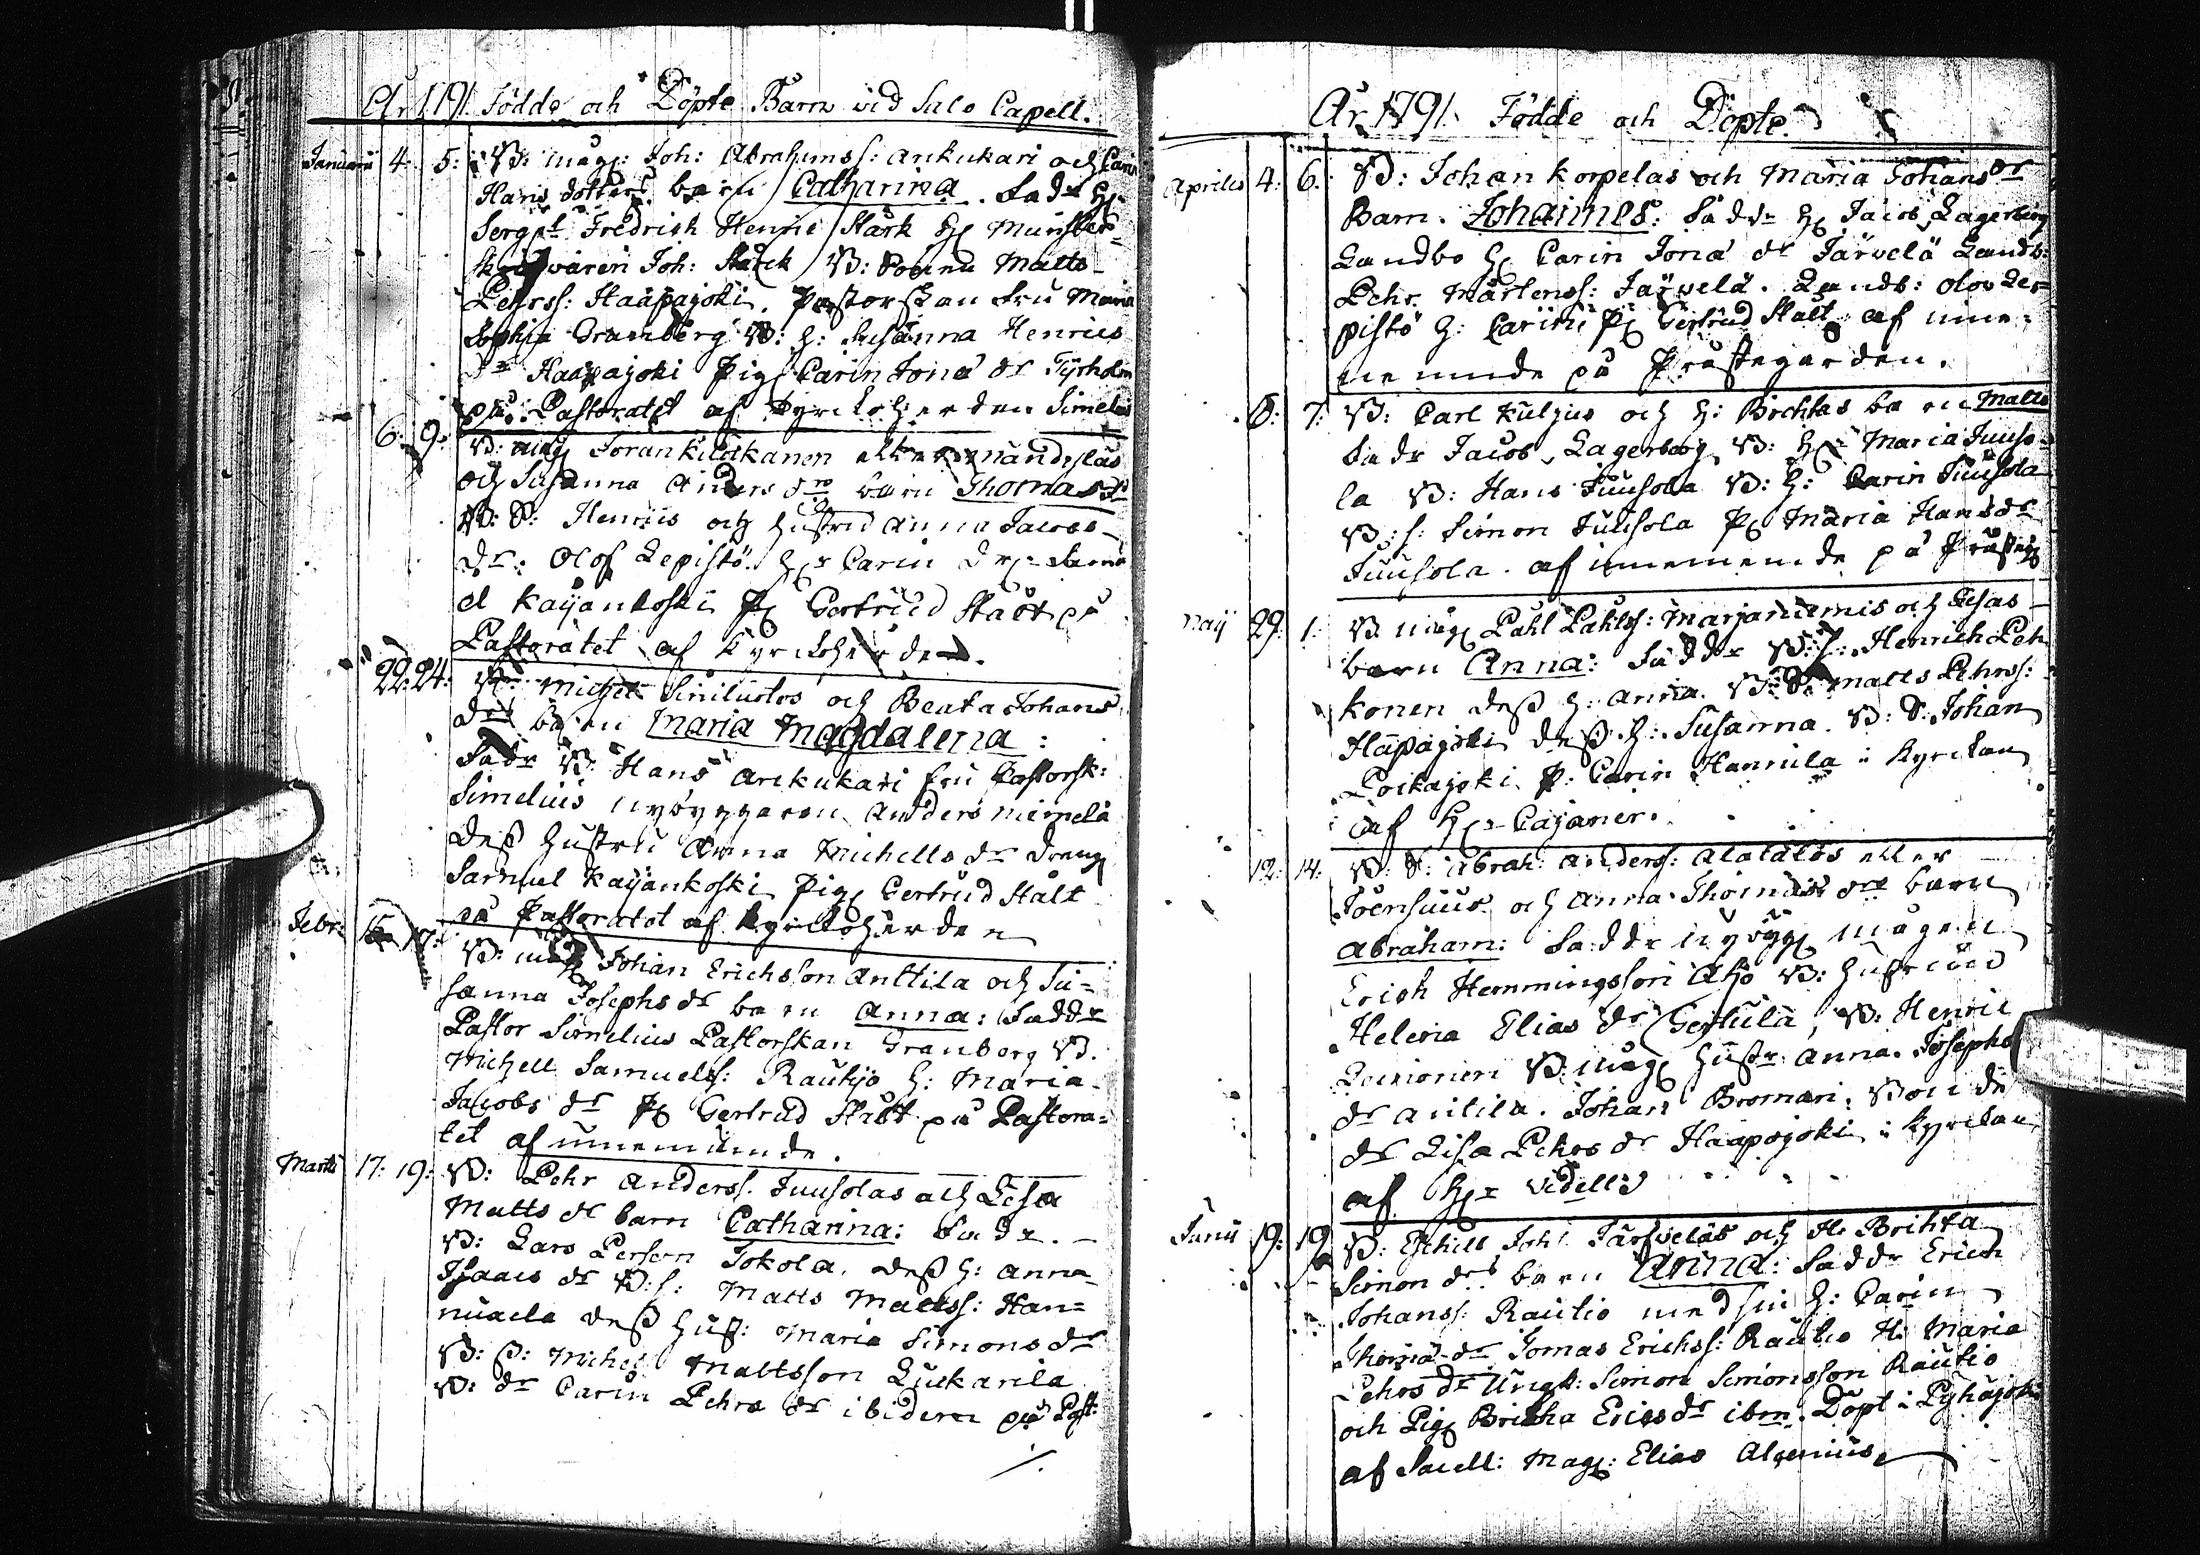 År 1791 Födde och Döpte Barn vid Salo Capell.
Januarii 4: 5: B: måg: Joh: Abrahamss: Ankukari och Carin
Hans dotters barn Catharina. Fadr H:
Sergnt Fredrich Henric Stark H: Münster-
skrifvaren Joh: Starck B: Sonen Matts
Pehrss: Haapajoki. Pastorskan Fru Maria
Sophia Granberg B: H: Susanna Henrics
dr Haapajoki Pig: Carin Jona dr Tyrholm
på Pastoratet af Kyrckoherden Simelius
6: 9: B: måg Joran Kilakanen eller
och Susanna Anders drs barn Thomas
B: S: Henric och Hustru Anna Jacobs
dr: Olof Lepistö. H:r Carin
Kajankoski P: Gertrud Stålt på
Pastoratet af Kyrckoherden.
22: 24: Michel Similuotos och Beata Johans
drs barn Maria Magdalena:
Fadr B: Hans Ankukari Fru Pastorsk:
Simelius nybyggaren Anders Niemelä
Dess Hustru Anna Michells dr Dreng
Samuel Kajankoski Pig: Gertrud Stålt
på Pastoratet af Kyrckoherden
Febr: 15 17: B: måg Johan Erichsson Anttila och Su=
sanna Josephs dr barn Anna: Faddr
Pastor Simelius Pastorskan Granberg B.
Michell Samuelss: Rautio H: Maria
Jacobs dr P: Gertrud Stålt på Pastora=
tet af innemunde.
Martii 17: 19: B: Pehr Anderss. Juusolas och Lisa
Matts dr barn Catharina: Fadr.
B: Lars Persson Jokola. Dess H: Anna
Isaacs dr B: S: Matts Mattss: Han=
nuaela Dess Hust: Maria Simons dr
B: S: Michel Mattsson Luckarila
B: dr Carin Pehrs dr ibidem på Past:
År 1791. Födde och Döpte.
Aprilis 4: 6: B: Johan Korpelas och Maria Johans dr
Barn. Johannes: Faddr H: Jacob Lagerberg
Landbo H: Carin Jona dr Järvelä Landb:
Pehr Mårtenss: Järvelä. Landb: Olov Le=
pistö H: Carin P: Gertrud Stålt af inne=
ne munde på Prästegården.
6: 7: B: Carl Kuljus och H: Birchtas barn Matts
Fadr Jacob Lagerberg B: H: Maria Juuso=
la B: Hans Juusola B: H: Carin Juusola
B: S: Simon Juusola P: Maria Hans dr
Juusola. af innemunde på Prästeg
Maij 29: 1: B måg Påhl Påhlss: Marjaniemis och Lisas
barn Anna: Faddr B: S: Henrich Peh
konen Dess H: Anna. B: S: Matts Pehrss:
Haapajoki Dess H: Susanna. B: S: Johan
Poikajoki. P: Carin Hannila i Kyrckan
af H:r Cajaner.
12: 14: B: S: Abrah: Anderss: Alatalos eller
Joensuus och Anna Thomas drs barn
Abraham: Faddr nybygg mågen
Erich Hemmingsson Aho B: Hustrun
Helena Elias dr Gertula, B: Henric
Leinonen B: måg Hustr: Anna Josephs
dr Anttila. Johan Broman: Bonde
dr Lisa Pehrs dr Haapajoki i Kyrckan
af H:r Videlli
Junii 19: 19 B: Eskill Joh: Järvelas och H: Brihta
Simon drs barn Anna: Faddr Erich
Johanss: Rautio med sin H: Carin
Thoma dr Tomas Erichss: Rautio H: Maria
Pehrs dr Ungk: Simon Simonsson Rautio
och Pig: Britha Erics dr ibm. Döpt i Pyhäjoki
af Sacell: Mag: Elias Alcenius